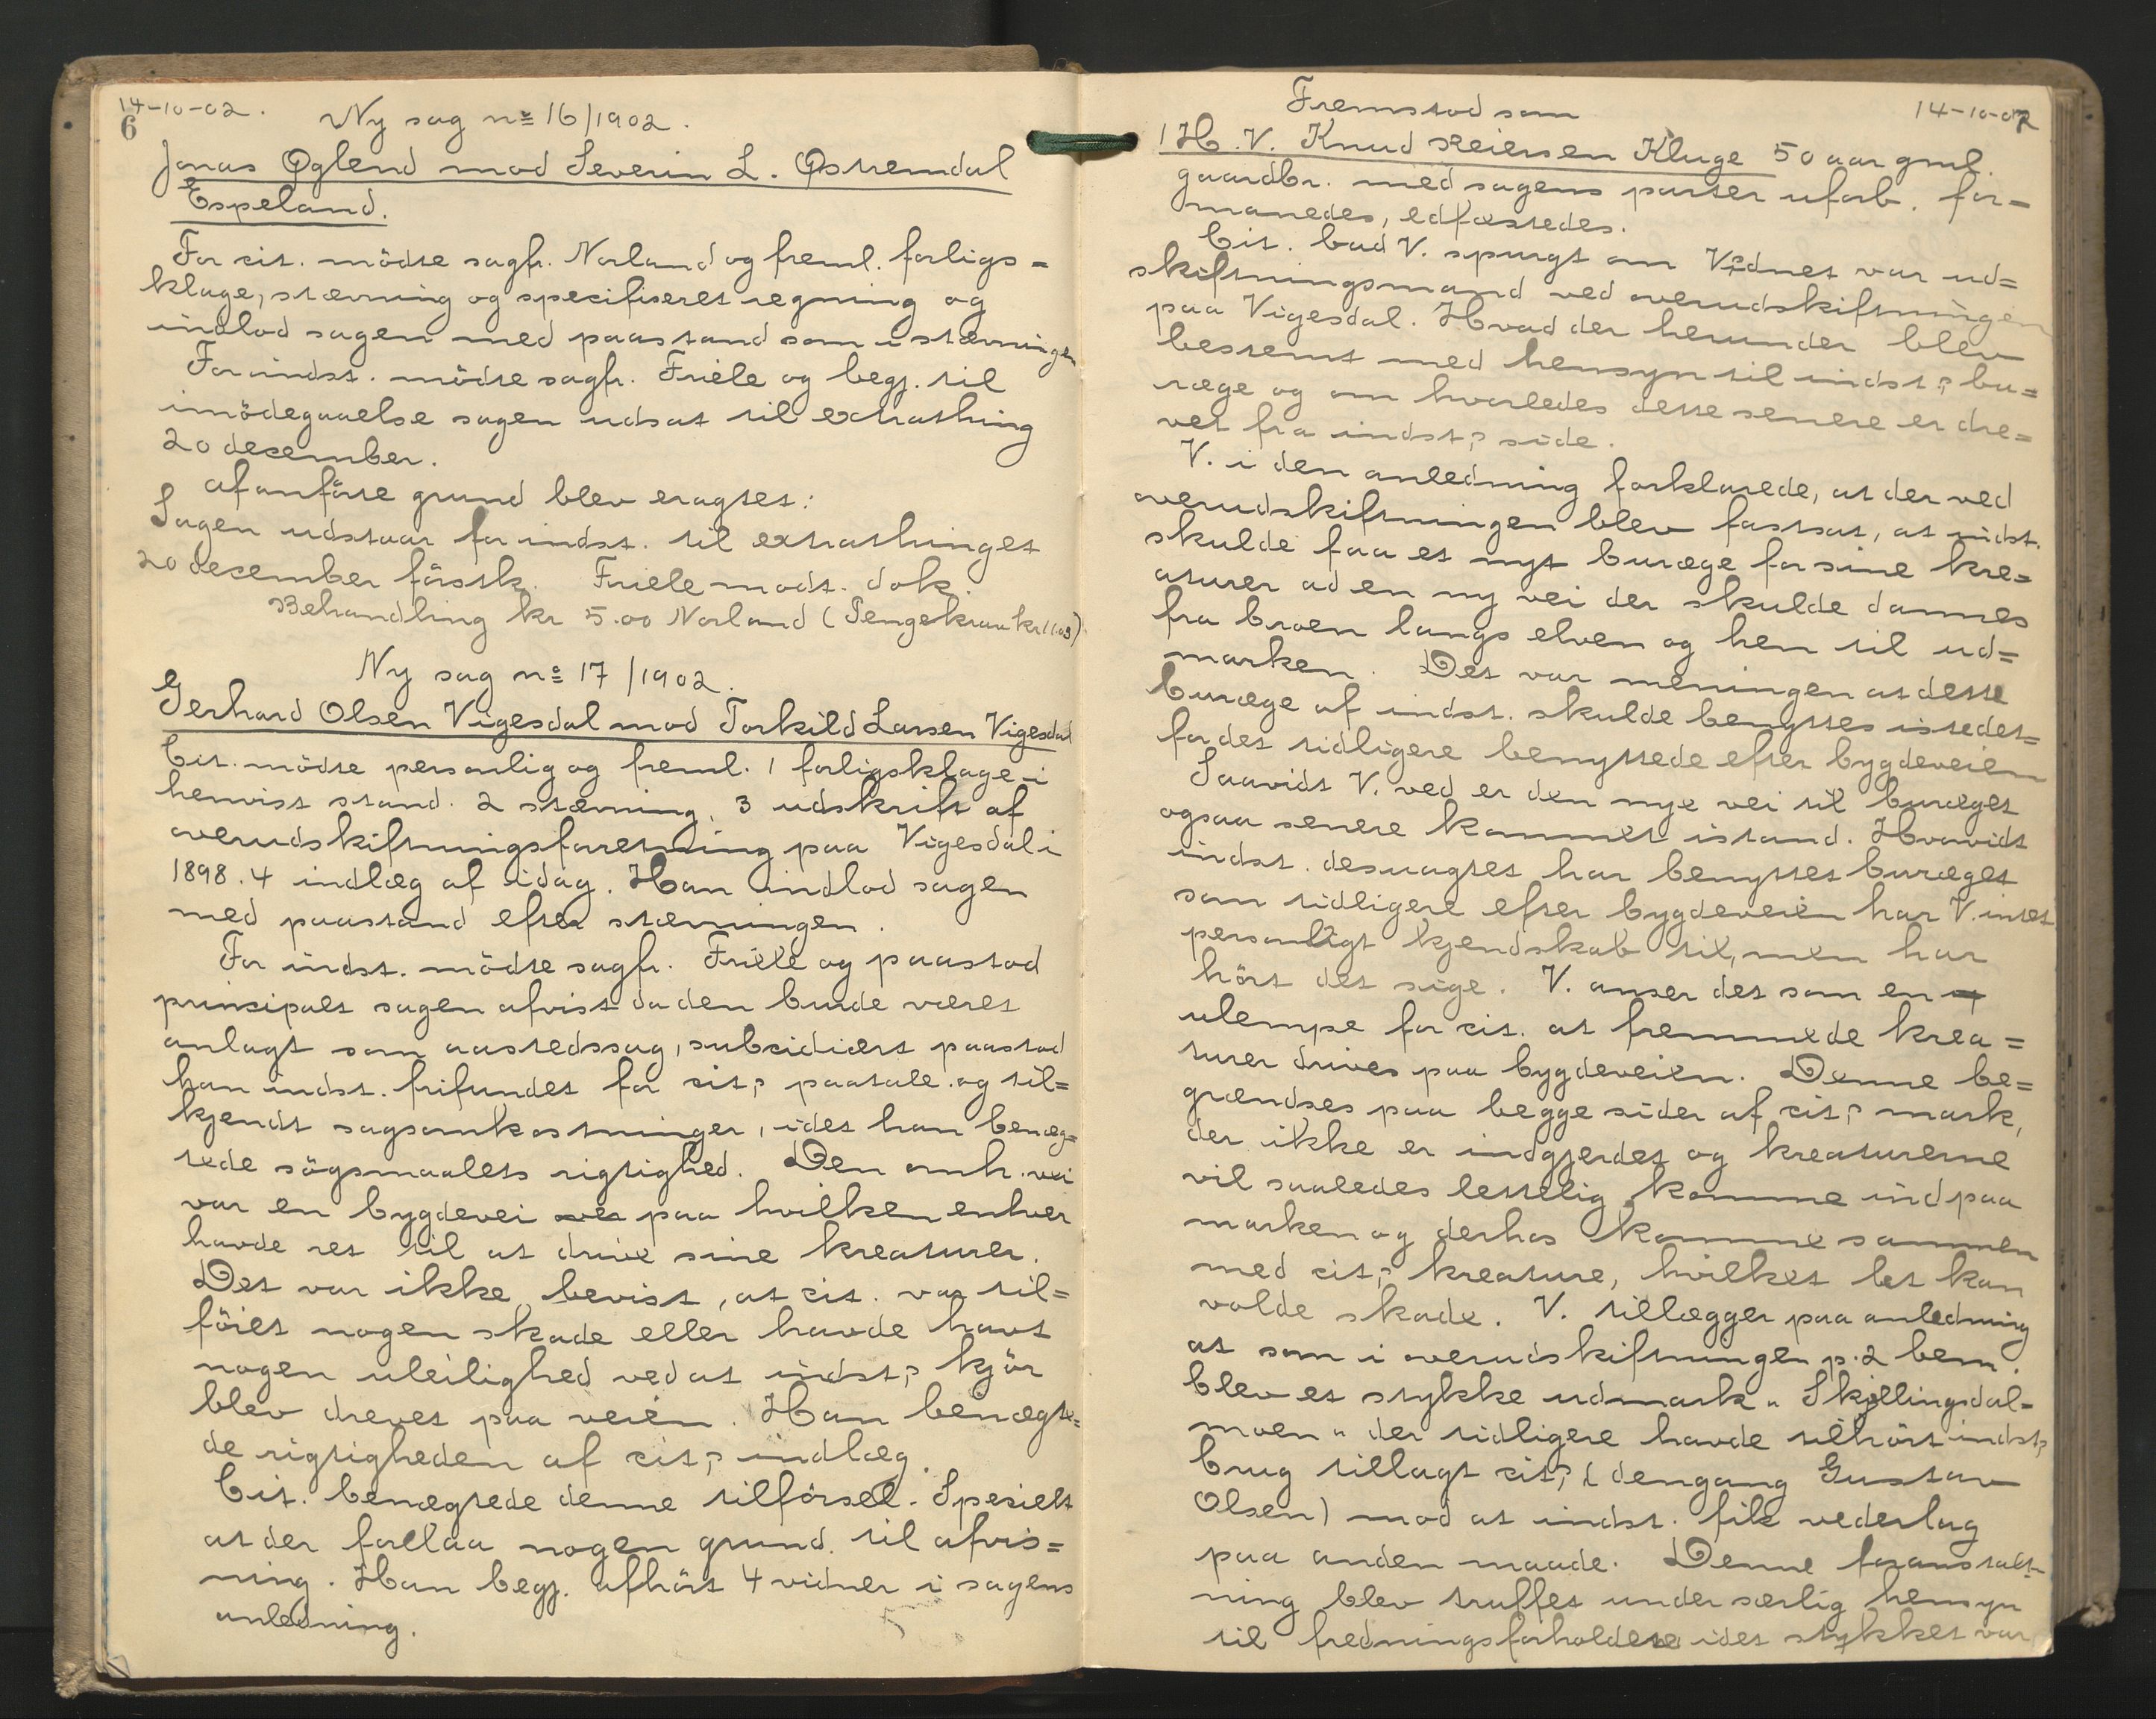 14-10-02.
6
Ny sag nº 16/1902.
Jonas Øglend mod Severin L. Østremdal
Espeland.
For cit. mödte sagfr. Norland og freml. forligs=
klage, stævning og specifiseret regning og
indlod sagen med paastand som i stævningen
For indst. mödte sagfr. Friele og begj. til
imödegaaelse sagen udsat til extrathing
20 december.
Af anförte grund blev eragtet:
Sagen udstaar for indst. til extrathinget
20 december förstk. Friele modt. dok.
Behandling kr 5.00 Norland (Pengekrav kr 11.03)
Ny sag nº 17/1902.
Gerhard Olsen Vigesdal mod Torkild Larsen Vigesdal
Cit. mödte personlig og freml. 1 forligsklage i
henvist stand. 2 stævning, 3 udskrift af
overudskiftningsforretning paa Vigesdal i
1898. 4 indlæg af idag. Han indlod sagen
med paastand efter stævningen.
For indst. mödte sagfr. Friele og paastod
principalt sagen afvist da den burde været
anlagt som aastedssag, subsidiært paastod
han indst. frifundet for cit.s paatale og til=
kjendt sagsomkostninger, idet han benæg=
tede sögsmaalets rigtighed. Den omh. vei
var en bygdevei paa hvilken enhver
havde ret til at drive sine kreaturer.
Det var ikke bevist, at cit. var til=
föiet nogen skade eller havde havt
nogen uleilighed ved at indst.s kjör
blev drevet paa veien. Han benægte=
de rigtigheden af cit.s indlæg.
Cit. benægtede denne tilförsel. Specielt
at der forelaa nogen grund til afvis=
ning. Han begj. afhört 4 vidner i sagens
anledning.
14-10-02
7
Fremstod som
1 H. V. Knud Reiersen Kluge 50 aar gml.
gaardbr. med sagens parter uforb. for=
manedes, edfæstedes.
Cit. bad V. spurgt om Vidnet var ud=
skiftningsmand ved overudskiftningen
paa Vigesdal. Hvad der herunder blev
bestemt med hensyn til indst.s bu=
ræge og om hvorledes dette senere er dre=
vet fra indst.s side.
V. i den anledning forklarede, at der ved
overudskiftningen blev fastsat, at indst.
skulde faa et nyt buræge for sine kre=
aturer ad en ny vei der skulde dannes
fra broen langs elven og hen til ud=
marken. Det var meningen at dette
buræge af indst. skulde benyttes istedet=
for det tidligere benyttede efter bygdeveien
Saavidt V. ved er den nye vei til buræget
ogsaa senere kommet istand. Hvorvidt
indst. desuagtet har benyttet buræget
som tidligere efter bygdeveien har V. intet
personligt kjendskab til, men har
hört det sige. V. anser det som en
ulempe for cit. at fremmede krea=
turer drives paa bygdeveien. Denne be=
grændses paa begge sider af cit.s mark,
der ikke er indgjerdet og kreaturerne
vil saaledes lettelig komme ind paa
marken og derhos komme sammen
med cit.s kreature, hvilket let kan
volde skade. V. tillægger paa anledning
at som i overudskiftningen p. 2 bem.
blev et stykke udmark "Skjellingsdal-
moen" der tidligere havde tilhört indst.s
brug tillagt cit.s (dengang Gustav
Olsen) mod at indst. fik vederlag
paa anden maade. Denne foranstalt-
ning blev truffet under særlig hensyn
til fredningsforholdene idet stykket var